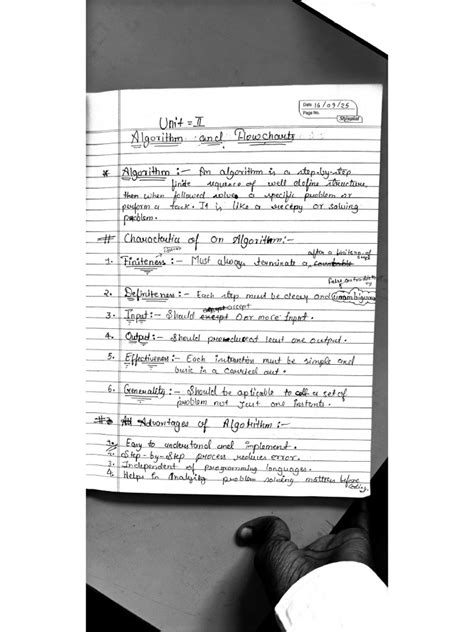 Date 16/09/25
Page No.
Unit = II
Algorithm and Flowcharts
* Algorithm :- An algorithm is a step-by-step
finite squence of well define structure,
then when followed solve a specific problem or
perform a task. It is like a recepy or solving
problem.
# Charactertic of an Algorithm:-
after a finite no. of
1. Finiteness :- Must always terminate a
2. Definiteness :- Each step must be cleary and unambiguous
accept
3. Input :- Should 0 or more Input.
4. Output :- Should produce at least one output.
5. Effectiveness :- Each instruction must be simple and
basic in a carried out.
6. Generality :- Should be aplicable to a set of
problem not just one instants.
# Advantages of Algorithm :-
1. Easy to understand and implement.
2. Step-by-step process reduces error.
3. Independent of programming languages.
4. Helps in Analying problem solving matters before
coding.